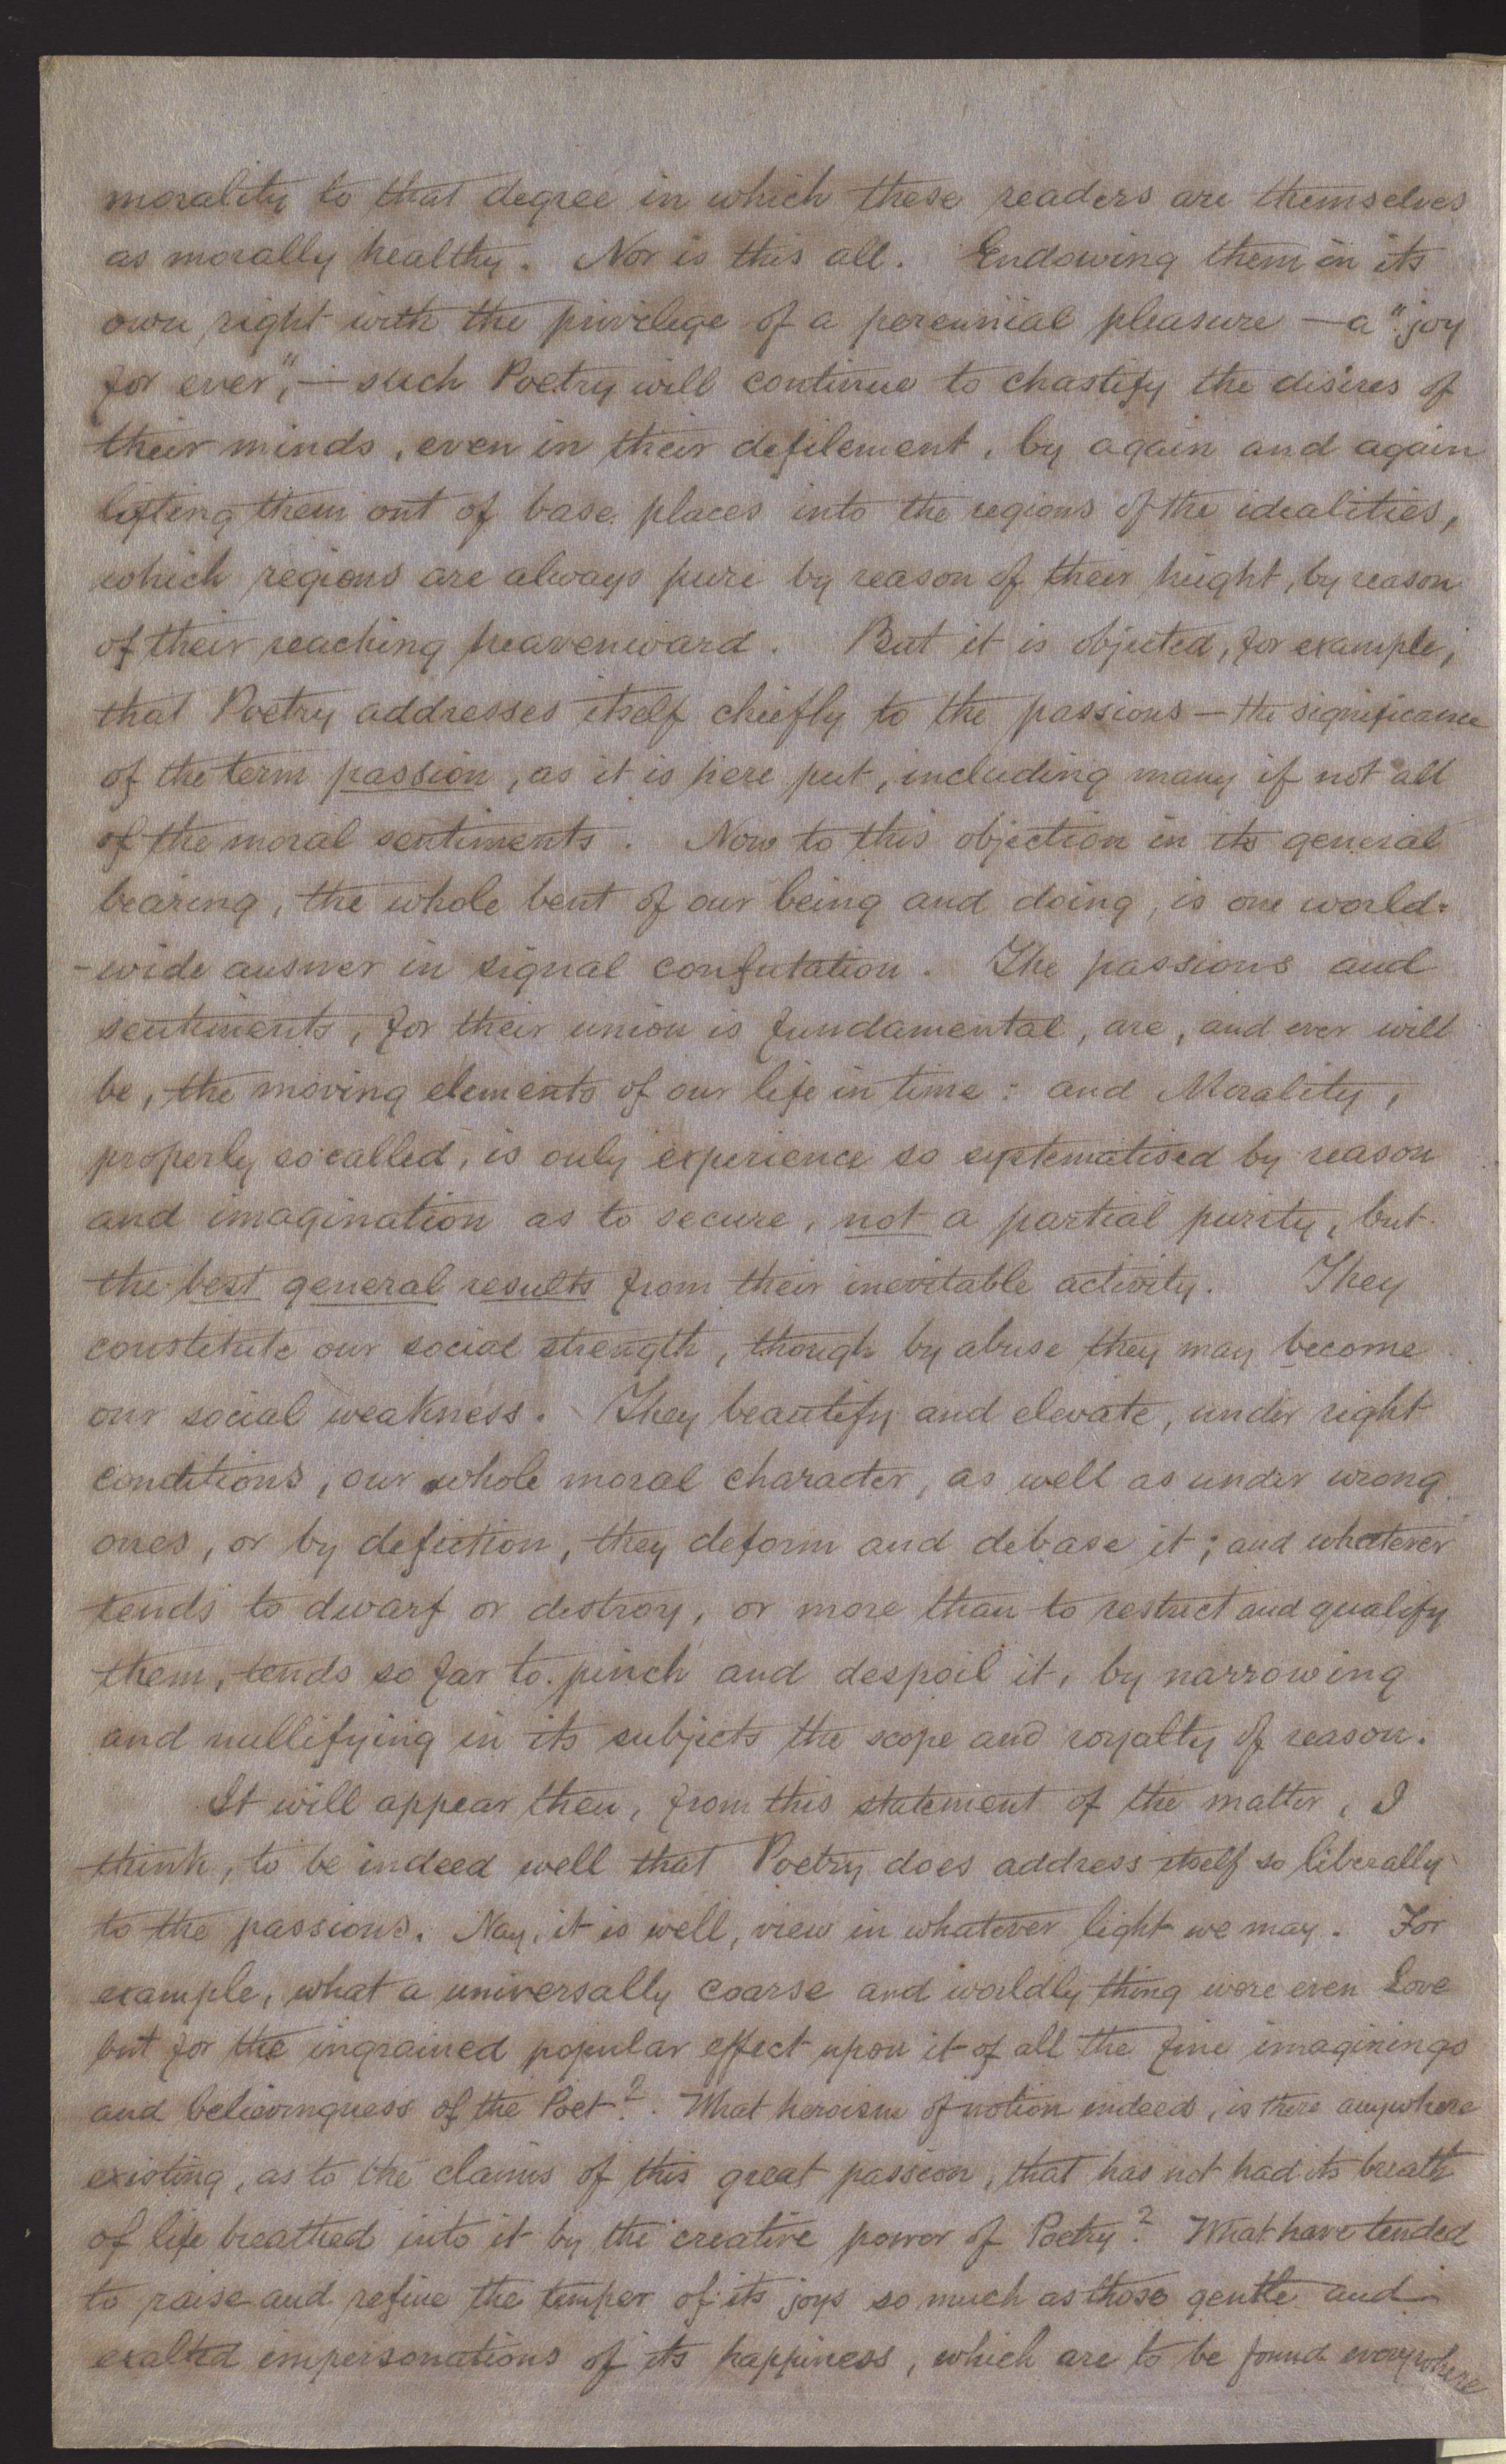 morality to that degree in which these readers are themselves
as morally healthy. Nor is this all. Endowing them in its
own right with the privelege of a perennial pleasure — a "joy
for ever", — such Poetry will continue to chastify the desires of
their minds, even in their defilement, by again and again
lifting them out of base places into the regions of the idealities,
which regions are always pure by reason of their height, by reason
of their reaching heavenward. But it is objected, for example,
that Poetry addresses itself chiefly to the passions — the significance
of the term passion, as it is here put, including many if not all
of the moral sentiments. Now to this objection in its general
bearing, the whole bent of our being and doing, is one world-
-wide answer in signal confutation. The passions and
sentiments, for their union is fundamental, are, and ever will
be, the moving elements of our life in time: and Morality,
properly so called, is only experience so systematised by reason
and imagination as to secure, not a partial purity, but
the best general results from their inevitable activity. They
constitute our social strength, though by abuse they may become
our social weakness. They beautify and elevate, under right
conditions, our whole moral character, as well as under wrong
ones, or by defection, they deform and debase it; and whatever
tends to dwarf or destroy, or more than to restrict and qualify
them, tends so far to pinch and despoil it, by narrowing
and nullifying in its subjects the scope and royalty of reason.
It will appear then, from this statement of the matter, I
think, to be indeed well that Poetry does address itself so liberally
to the passions. Nay, it is well, view in whatever light we may. For
example, what a universally coarse and worldly thing were even Love
but for the ingrained popular effect upon it of all the fine imaginings
and believingness of the Poet? What heroism of notion indeed, is there anywhere
existing, as to the claims of this great passion, that has not had its breath
of life breathed into it by the creative power of Poetry? What have tended
to raise and refine the temper of its joys so much as those gentle and
exalted impersonations of its happiness, which are to be found everywhere